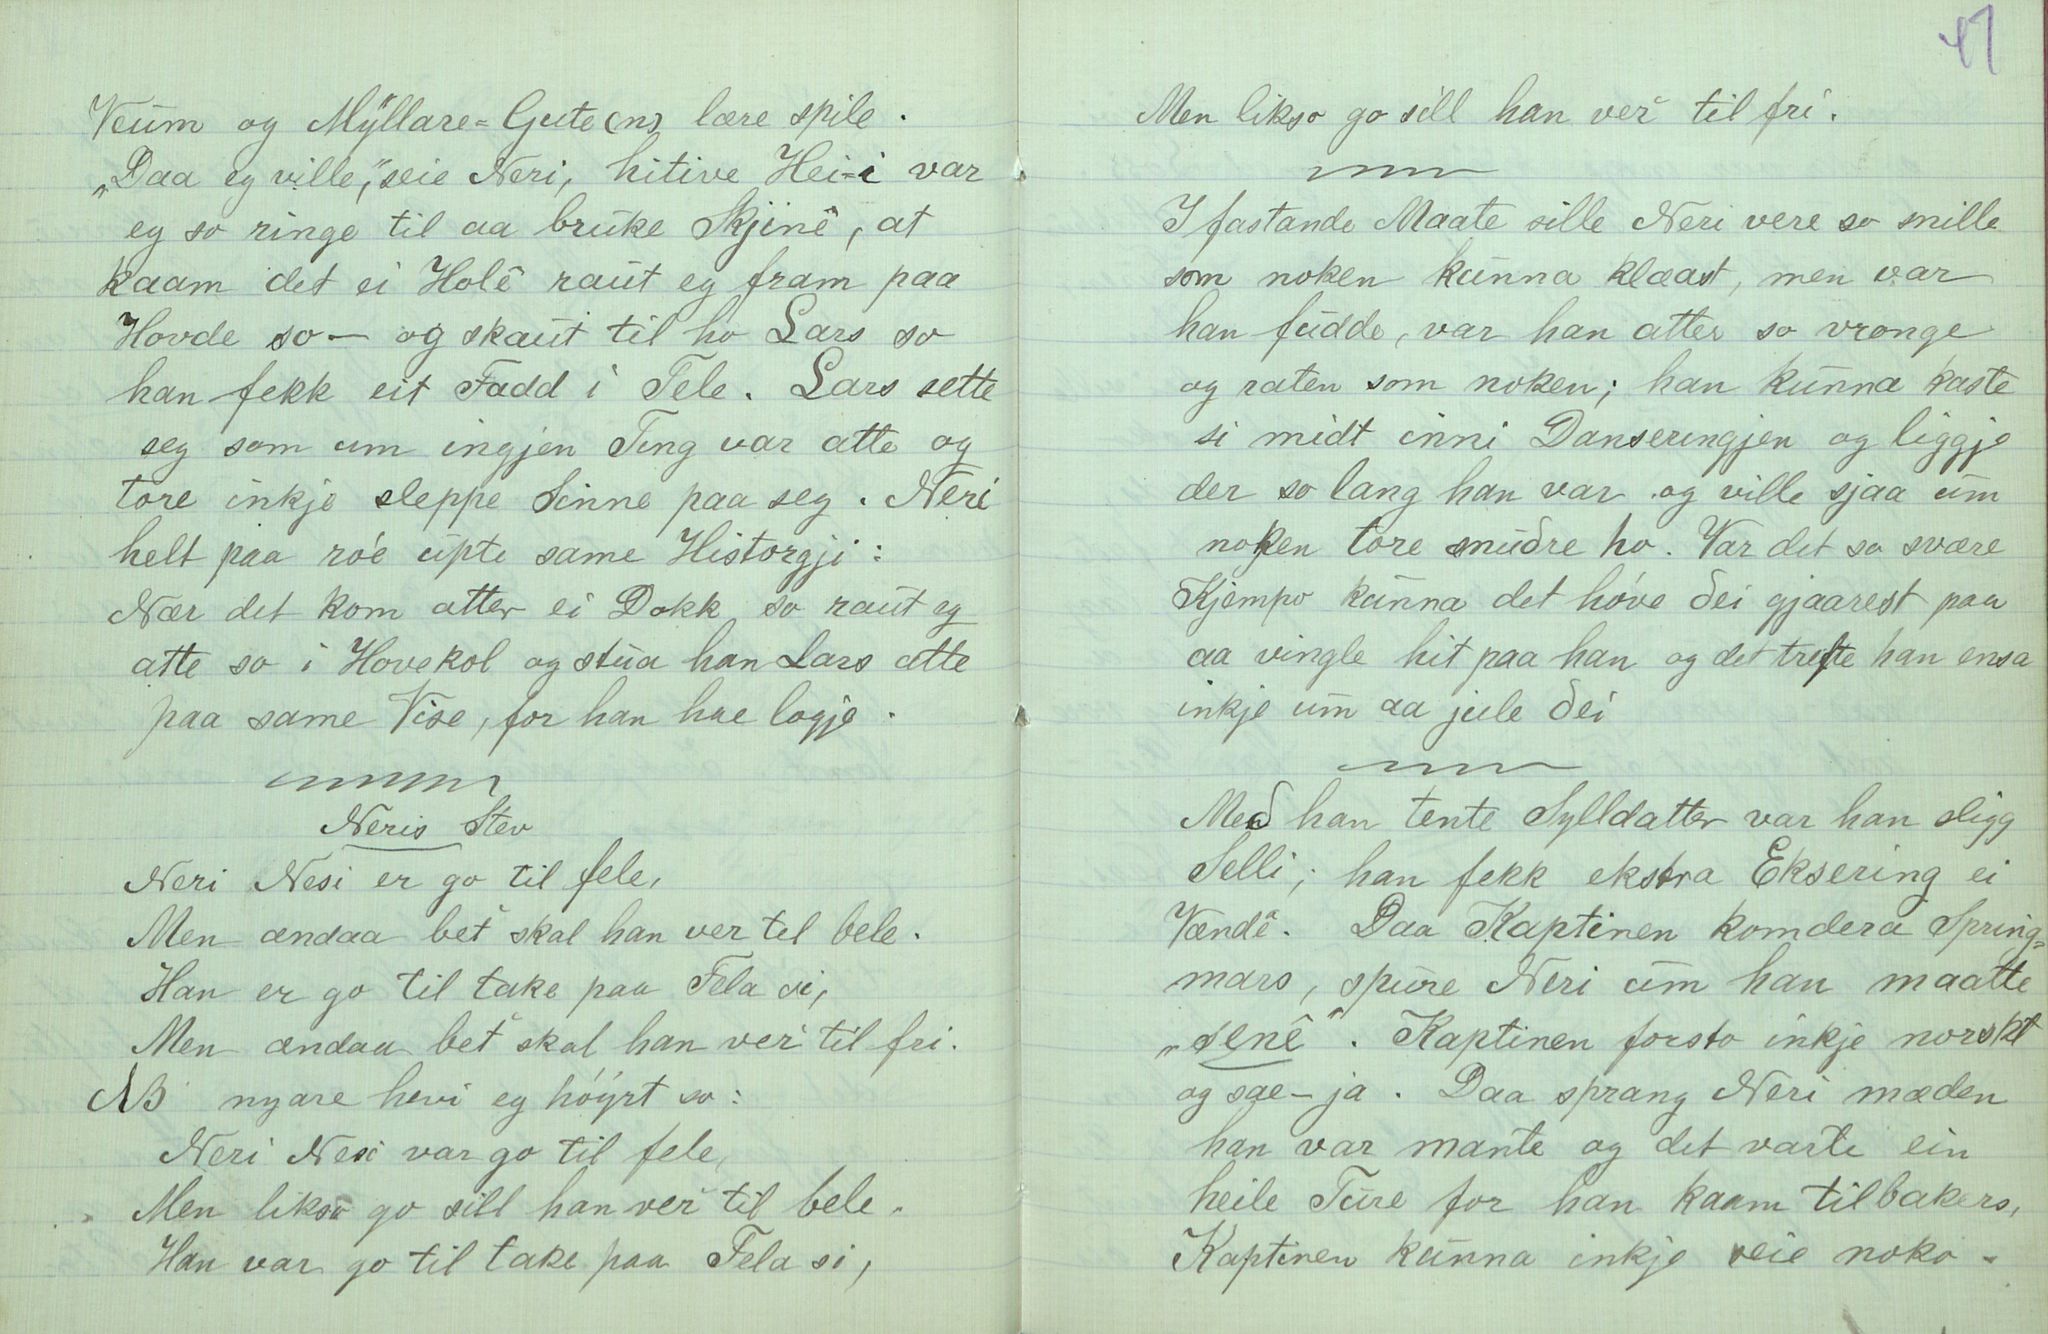 Veum og Mÿllare-Gute(n) lære spile.
„Daa eg ville," seie Neri, hitive Hei-i var
eg so ringe til aa bruke Skjinê, at
kaam det ei Holê raut eg fram paa
Hovde so — og skaut til ho Lars so
han fekk eit Fadd i Tele. Lars sette
seg som um ingjen Ting var atte og
tore inkje sleppe Sinne paa seg. Neri
helt paa róe upte same Historgji:
Nær det kom atter ei Dokk so raut eg
atte so i Hovekol og stua han Lars atte
paa same Vise, for han hae logje.
Neris Stev
Neri Nesi er go til fele,
Men ændaa bet skal han ver tel bele.
Han er go til take paa Fela si,
Men ændaa bet skal han ver til fri.
NB nyare hevi eg höyrt so:
Neri Nesi var go til fele,
Men likso go sill han ver til bele.
Han var go til take paa Fela si,
47
Men likso go sill han ver til fri.
I fastande Maate sille Neri vere so snille
som noken kunna klæast, men var
han fudde, var han atter so vronge
og raten som noken; han kunna kaste
si midt inni Danseringjen og liggje
der so lang han var og ville sjaa um
noken tore snuðre ho. Var det so svære
Kjempo kunna det höve ðei gjaarest paa
aa vingle hit paa han og det trefte han ensa
inkje um aa jule ðei
Með han tente Sylldatter var han sligg
Selli; han fekk ekstra Eksering ei
Vændê. Daa Kaptinen komdera Spring-
mars, spure Neri um han maatte
„senê". Kaptinen forsto inkje norskt
og sae – ja. Daa sprang Neri mæden
han var mante og det varte ein
heile Ture for han kaam tilbakers,
Kaptinen kunna inkje seie noko.